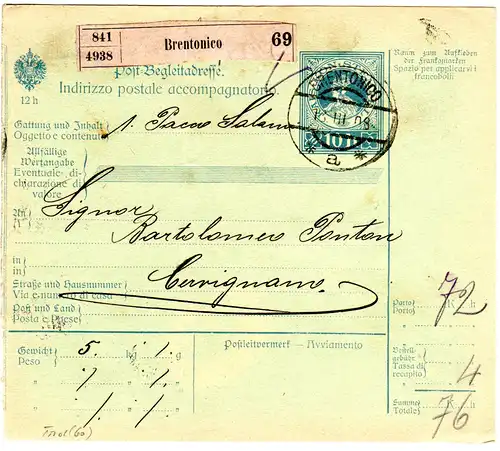 841
4938
Brentonico
69
Post-Begleitadresse.
Indirizzo postale accompagnatorio.
12 h
Raum zum Aufkleben
der Frankomarken
Spazio per applicarvi i
francobolli.
BRENTONICO
III 08
* a *
10
Gattung und Inhalt
Oggetto e contenuto
1. Pacco Salami
Allfällige
Wertangabe
Eventuale di-
chiarazione di
valore
An
Signor
Bartolomeo Ponton
in
in
Cervignano
Straße und Hausnummer
Via e numero di casa
Post und Land
Posta e Paese
Porto
Porto
K h
72
Gewicht
Peso
5. kg 1. g
" / 1. "
" 1. 1. "
Postleitvermerk — Avviamento
Bestell-
gebühr
Tassa di
recapito
4
Summe
Totale
K h
76
Tirol (60)